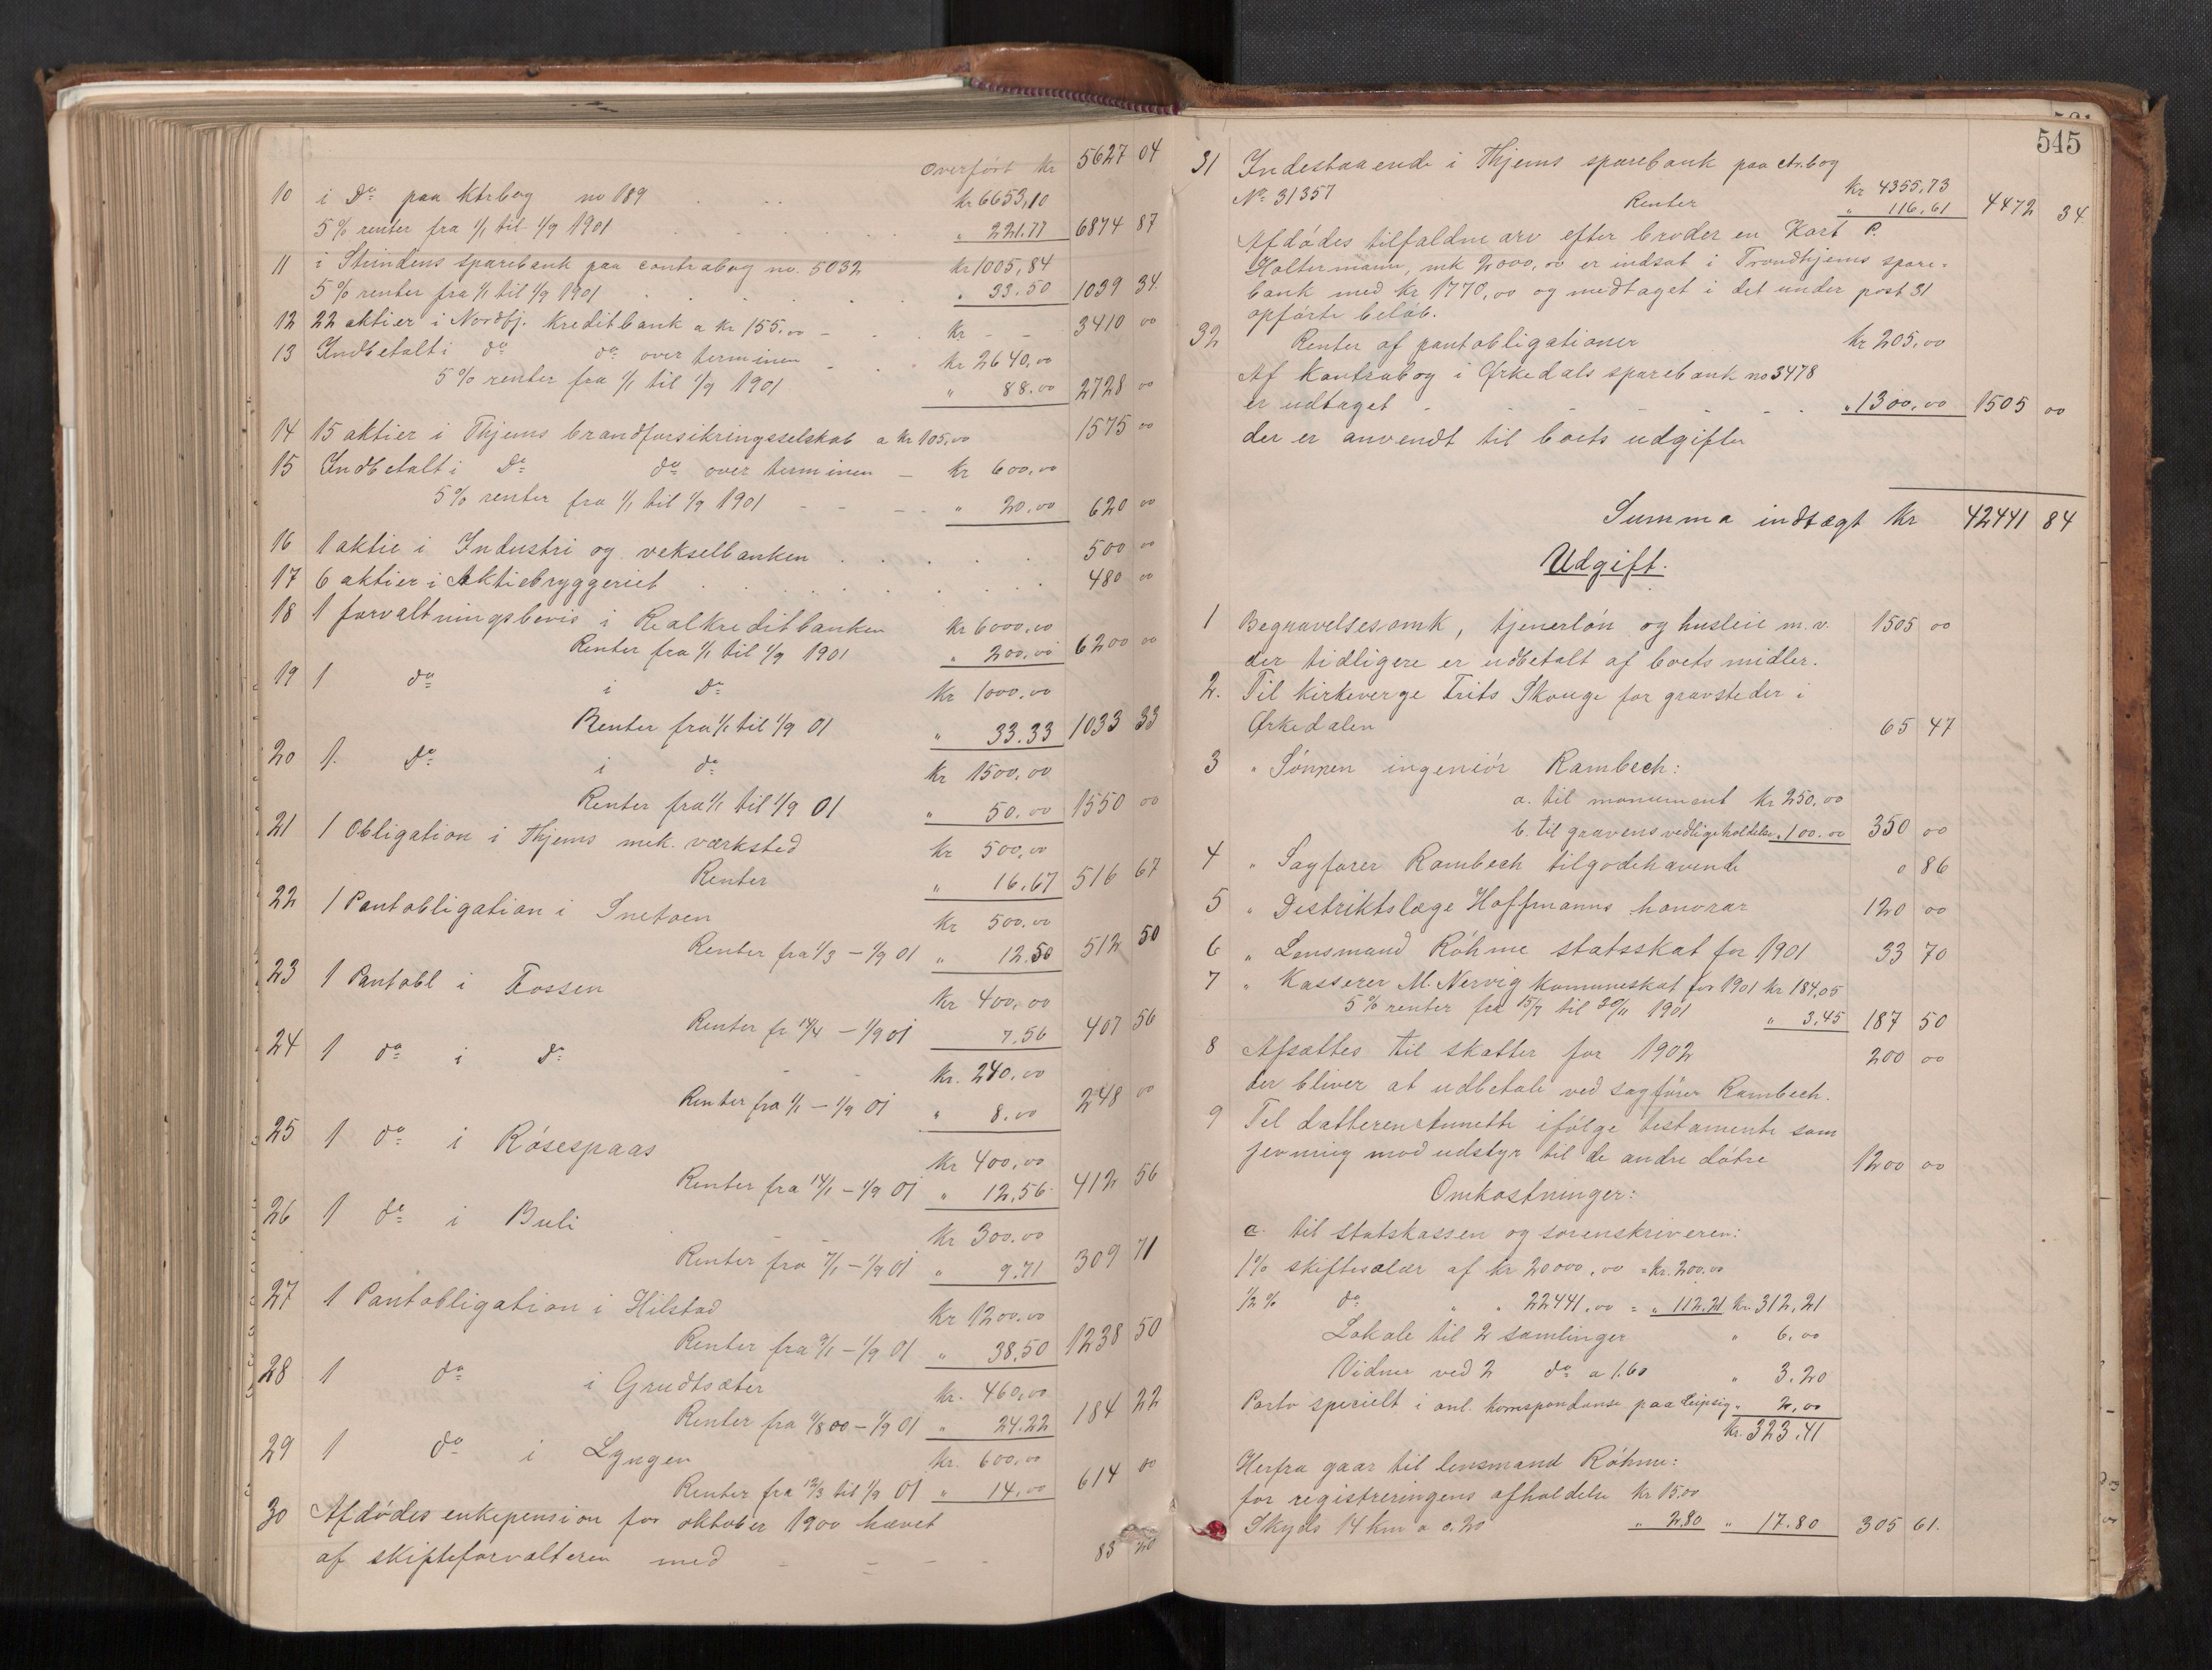 Overført kr 5627 04
10 i Do paa ktrbog no 189 . . . kr 6653,10
5% renter fra 1/1 til 1/9 1901 " 221.77 6874 87
11 i Strindens sparebank paa contrabog no. 5032 kr 1005,84
5% renter fra 1/1 til 1/9 1901 " 33.50 1039 34
12 22 aktier i Nordfj. kreditbank a kr 155.00 - kr - - 3410 00
13 Indbetalt i do do over terminen kr 2640,00
5% renter fra 1/1 til 1/9 1901 " 88.00 2728 00
14 15 aktier i Thjems brandforsikringsselskab a kr 105,00 1575 00
15 Indbetalt i Do do over terminen - kr 600,00
5% renter fra 1/1 til 1/9 1901 " 20,00 620 00
16 1 aktie i Industri og vekselbanken 500 00
17 6 aktier i Aktiebryggeriet 480 00
18 1 forvaltningsbevis i Realkreditbanken kr 6000,00
Renter fra 1/1 til 1/9 1901 " 200,00 6200 00
19 1 do i Do kr 1000,00
Renter fra 1/1 til 1/9 01 " 33.33 1033 33
20 1. Do i do kr 1500,00
Renter fra 1/1 til 1/9 01 " 50.00 1550 00
21 1 Obligation i Thjems mek. værksted kr 500,00
Renter " 16.67 516 67
22 1 Pantobligation i Snetoen kr 500.00
Renter fra 1/3 - 1/9 01 " 12.50 512 50
23 1 Pantobl i Fossen kr 400,00
Renter fr 14/4 - 1/9 01 7,56 407 56
24 1 do i do kr. 240,00
Renter fra 1/1 - 1/9 01 " 8.00 248 00
25 1 do i Røsespaas kr 400,00
Renter fra 14/1 - 1/9 01 " 12,56 412 56
26 1 do i Buli kr 300.00
Renter fra 7/1 - 1/9 01 " 9.71 309 71
27 1 Pantobligation i Hilstad kr 1200.00
Renter fra 9/1 - 1/9 01 " 38.50 1238 50
28 1 do i Grudtsæter kr. 460,00
Renter fra 9/8 00 - 1/9 01 " 24.22 184 22
29 1 do i Lyngen kr. 600,00
Renter fra 12/3 til 1/9 01 " 14,00 614 00
30 Afdødes enkepension for oktober 1900 hævet
af skifteforvalteren med - - - - 83 20
545
31 Indestaaende i Thjems sparebank paa ctr.bog
No 31357 kr 4355,73
Renter " 116,61 4472 34
Afdødes tilfaldne arv efter broderen Kort P.
Holtermann, mk 2000,00 er indsat i Trondhjems spare-
bank med kr 1770,00 og medtaget i det under post 31
opførte beløb.
32 Renter af pantobligationer kr 205,00
Af kontrabog i Ørkedals sparebank no 3478
er udtaget - - - - - " 1300,00 1505 00
der er anvendt til boets udgifter
Summa indtægt kr 42441 84
Udgift.
1 Begravelsesomk, tjenerløn og husleie m.v. 1505 00
der tidligere er udbetalt af boets midler.
2. Til kirkeverge Frits Skauge for gravsteder i
Ørkedalen 65 47
3 " Sønnen ingeniør Rambech:
a. til monument kr 250,00
b. til gravens vedligeholdelse " 100.00 350 00
4 " Sagfører Rambech tilgodehavende 0 86
5 " Distriktslæge Hoffmanns honorar 120 00
6 " Lensmand Røhme statsskat for 1901 33 70
7 " Kasserer M. Nervig komuneskat for 1901 kr 184,05
5% renter fra 15/7 til 30/11 1901 " 3,45 187 50
8 Afsættes til skatter for 1902 200 00
der bliver at udbetale ved sagfører Rambech.
9 Til datteren Annette ifølge testamente som
jevning mod udstyr til de andre døtre 1200 00
Omkostninger:
a. til statskassen og sorenskriveren:
1% skiftesalær af kr 20000,00 = kr. 200.00
1/2% do " " 22441.00 = " 112.21 kr. 312,21
Lokale til 2 samlinger " 6,00
Vidner ved 2 do a 1.60 " 3.20
Porto specielt i anl. korrespondanse paa Leipsig " 2,00
kr. 323.41
Herfra gaar til lensmand Røhme:
for registreringens afholdelse kr 15.00
Skyds 14 km a 0.20 " 2.80 " 17.80 305 61.